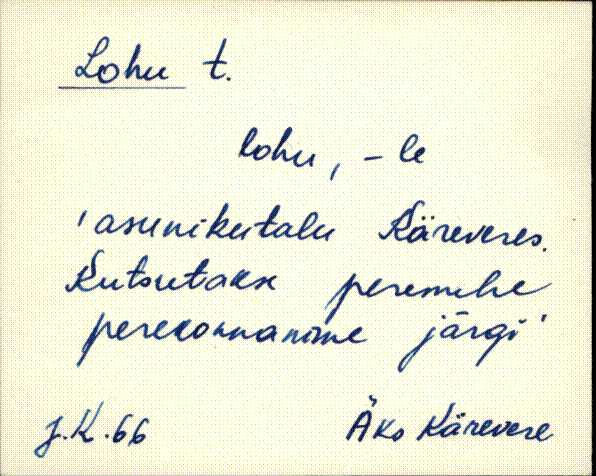 Lohu t.
lohu, -le
'asunikutalu Käreveres.
Kutsutakse peremehe
perekonnanime järgi'
J.K. 66 Äks Kärevere